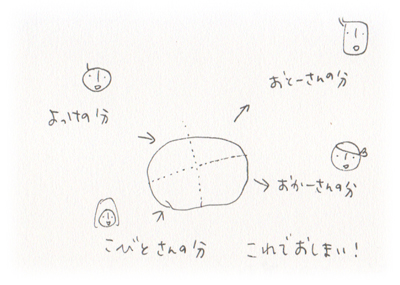 おとーさんの分
よっけの分
おかーさんの分
こびとさんの分
これでおしまい!